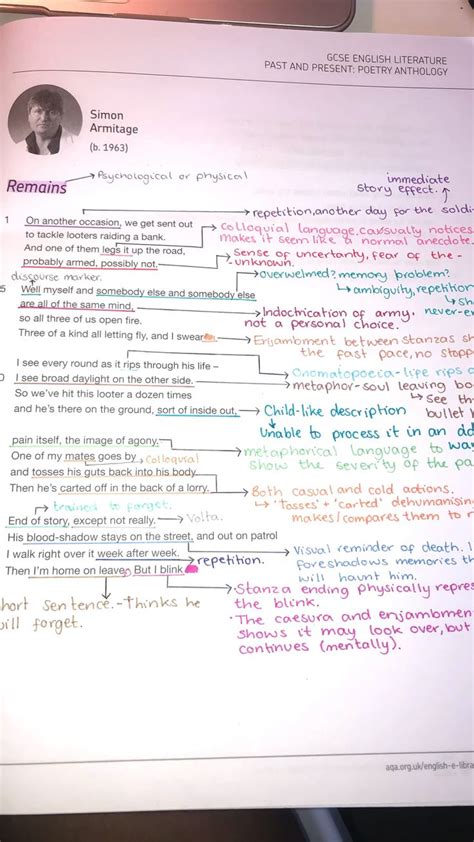 GCSE ENGLISH LITERATURE
PAST AND PRESENT: POETRY ANTHOLOGY
Simon
Armitage
(b. 1963)
Remains
Psychological or physical
immediate
story effect.
repetition, another day for the soldi
1 On another occasion, we get sent out
to tackle looters raiding a bank.
colloquial language, casually notices
makes it seem like a normal anecdote.
And one of them legs it up the road,
probably armed, possibly not.
Sense of uncertainty, fear of the
unknown.
discourse marker.
overwelmed? memory problem?
5 Well myself and somebody else and somebody else
ambiguity, repetition
are all of the same mind,
so all three of us open fire.
Indoctrication of army. never-en
not a personal choice.
Three of a kind all letting fly, and I swear
Enjambment between stanzas sh
the fast pace, no stopp
I see every round as it rips through his life –
Onomatopoeia - life rips
0 I see broad daylight on the other side.
metaphor - soul leaving bo
See th
So we've hit this looter a dozen times
and he's there on the ground, sort of inside out,
Child-like description
bullet
Unable to process it in an
pain itself, the image of agony.
metaphorical language to
show the severity of the pa
One of my mates goes by
colloquial
and tosses his guts back into his body.
Then he's carted off in the back of a lorry.
Both casual and cold actions.
'Tosses' + 'carted' dehumanising
makes/compares them to r
trained to forget.
End of story, except not really.
Volta.
His blood-shadow stays on the street, and out on patrol
I walk right over it week after week.
repetition.
Visual reminder of death. I
foreshadows memories th
will haunt him.
Then I'm home on leave. But I blink
hort sentence. - Thinks he
ill forget.
Stanza ending physically repres
the blink.
The caesura and enjambment
shows it may look over, but
continues (mentally).
aqa.org.uk/english-e-libra